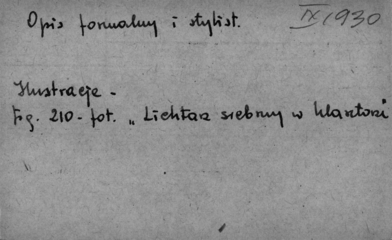 Opis formalny i stylist.
IX 1930
Ilustracje -
Fg. 210 - fot. „Lichtarz srebrny w